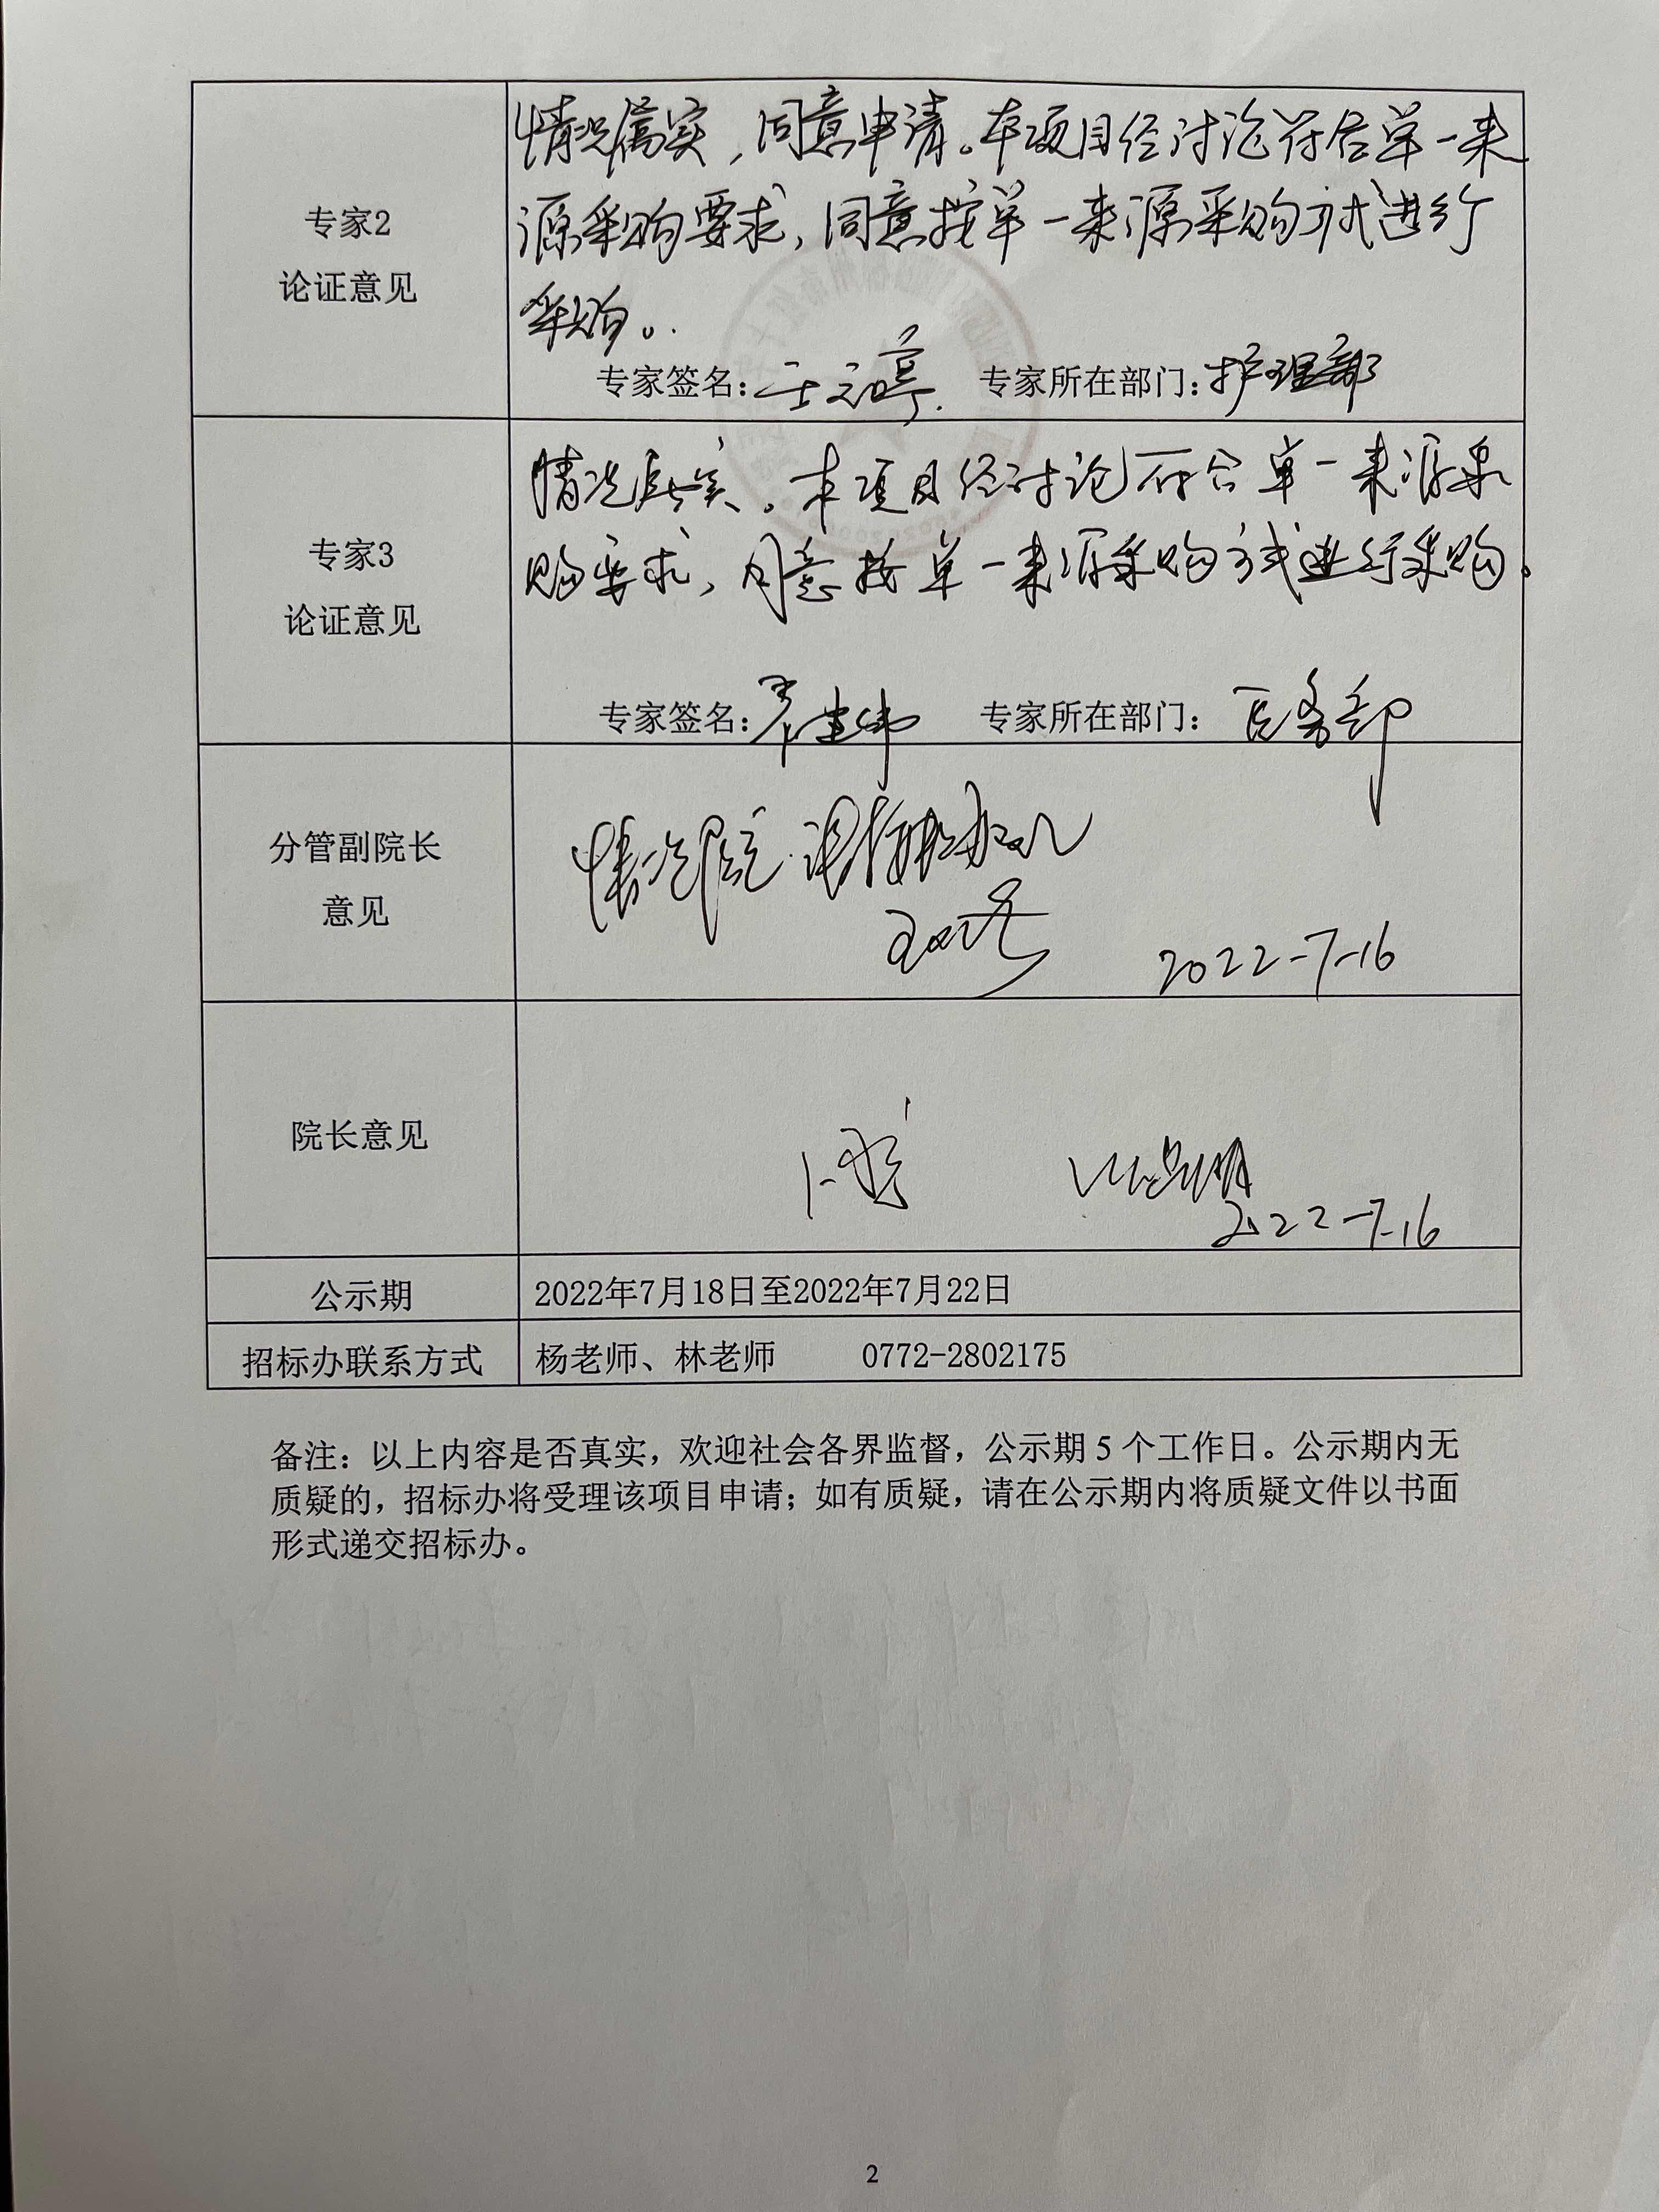 专家2
论证意见
情况属实,同意申请。本项目经讨论符合单一来
源采购要求,同意按单一来源采购方式进行
采购。
专家签名: 专家所在部门:护理部
专家3
论证意见
情况属实。本项目经讨论符合单一来源采
购要求,同意按单一来源采购方式进行采购。
专家签名: 专家所在部门: 医务部
分管副院长
意见
情况属实
2022-7-16
院长意见
同意
2022-7-16
公示期
2022年7月18日至2022年7月22日
招标办联系方式
杨老师、林老师 0772-2802175
备注:以上内容是否真实,欢迎社会各界监督,公示期 5 个工作日。公示期内无
质疑的,招标办将受理该项目申请;如有质疑,请在公示期内将质疑文件以书面
形式递交招标办。
2